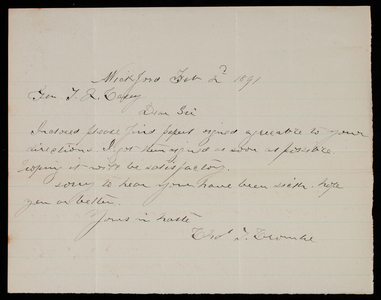 Wickford Feb 2d 1891
Gen T. L. Casey
Dear Sir
Inclosed please find paper signed agreeable to your
directions. I got them signed as soon as possible
hoping it will be satisfactory.
sorry to hear you have been sick. hope
you are better.
Yours in haste
Thos T.